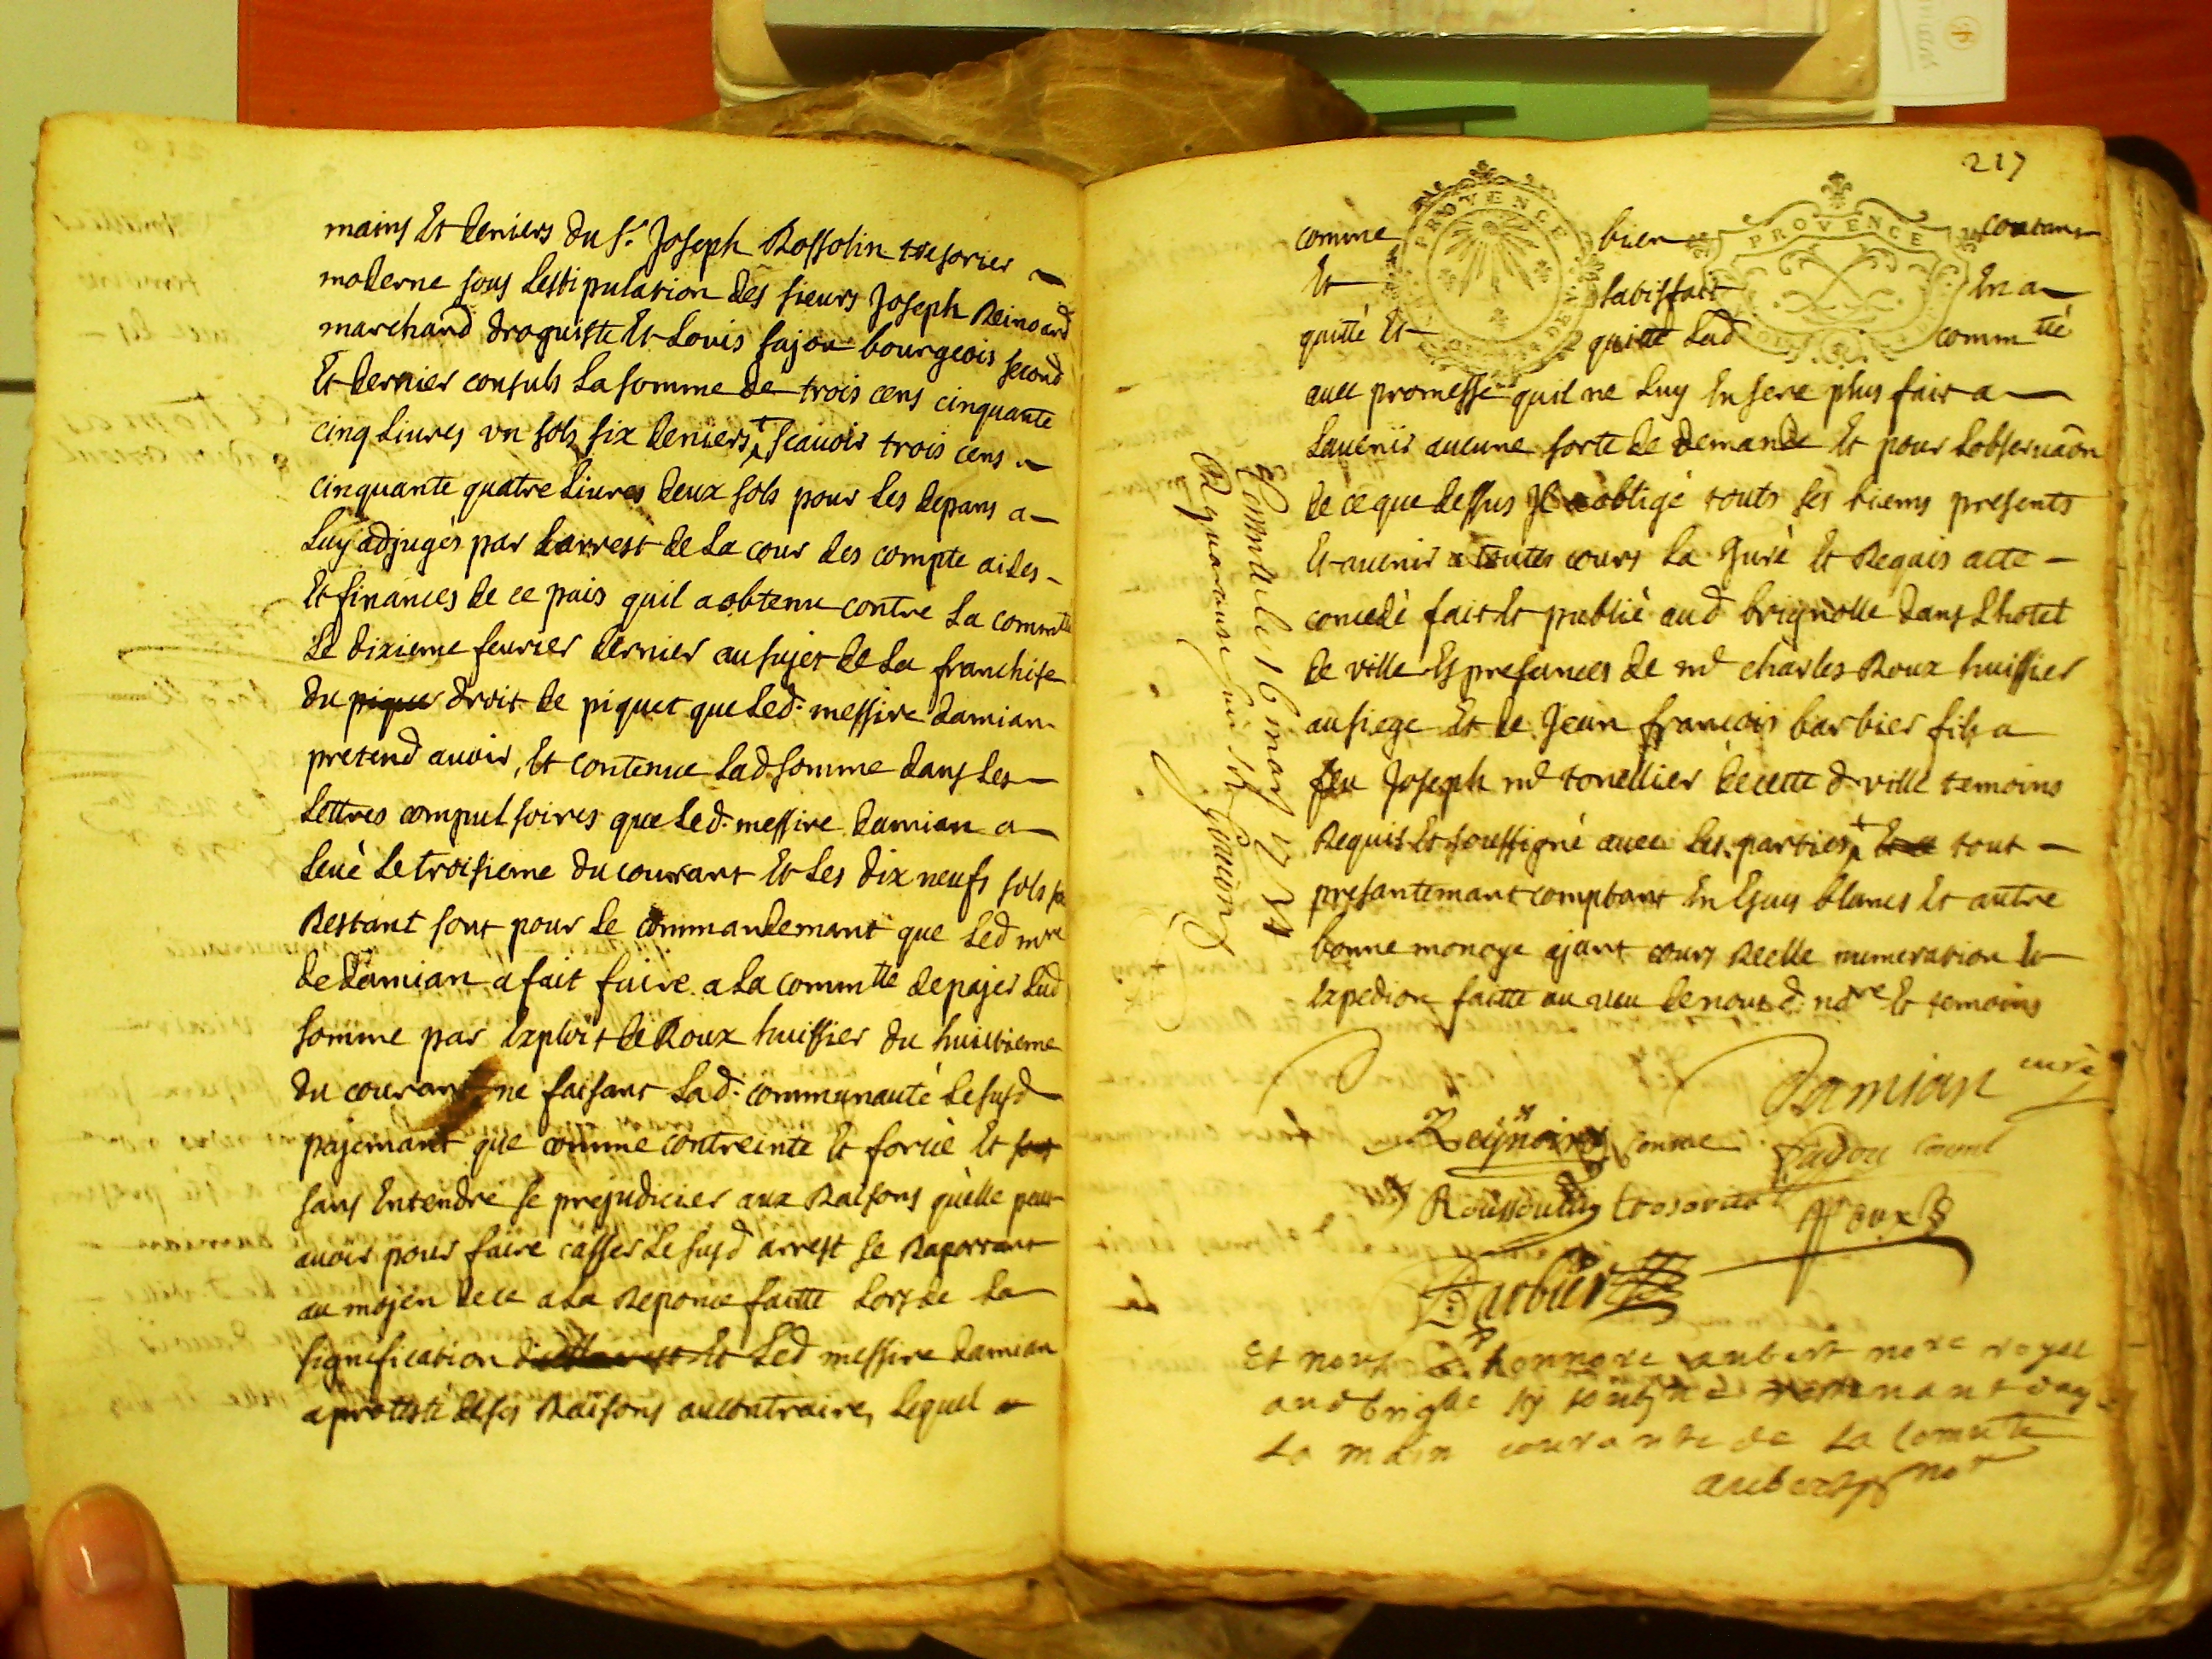 mains Et deniers du sr. Joseph Rossolin tresorier
moderne sous Lestipulation des sieurs Joseph Reinoard
marchand droguiste Et Louis fajou bourgeois second
Et dernier consuls La somme de trois cens cinquante
cinq Liures vn sols six deniers scauoir trois cens
cinquante quatre Liures deux sols pour Les depans a
Luy adjugés par Larrest de La cour des compte aides
Et finances de ce pais quil a obtenu contre La commté
Le dixieme feurier dernier au sujet de La franchise
du piquet droit de piquet que Led. messire damian
pretend auoir, Et contenue Lad somme dans Les
Lettres compulsoires que Led. messire damian a
Leué Le troisieme du courant Et Les dix neufs sols
Restant sont pour Le commandemant que Led mre
de damian a fait faire a La commté de pajer Lad
somme par Exploit de Roux huissier du huitieme
du courant ne faisant Lad. communauté Le susd
pajemant que comme contreinte Et forcée Et
sans Entendre se prejudicier aux Raisons quélle peut
auoir pour faire casser Le susd arrest se Raportant
au mojen de ce a La Reponce faitte Lors de La
signification Et Led messire damian
a protesté de ses Raisons au contraire, Lequel
217
PROVENCE
PROVENCE
comme bien contant
Et satisfait En a
quitté Et quitte Lad commté
auec promesse quil ne Luy En sere plus fait a
Lauenir aucune sorte de demande Et pour Lobseruaon
de ce que dessus Jl a obligé touts ses biens presents
Et auenir a toutes cours La Juré Et Requis acte
concedé fait Et publié aud brignolle dans Lhotel
de ville Es presances de me charles Roux huissier
au siege Et de Jean francois barbier fils a
feu Joseph me tonellier de cette d. ville temoins
Requis Et soussigné auec Les parties tout
presantemant comptant En Escus blancs Et autre
bonne monoye ajant cours Reelle numeration Et
Expedion faitte au veu de nous d. nore Et temoins
Damian curé
Reynoird Consul fajou consul
Roussoulin tresorier Roux
Barbier
Et nous honnore aubert nore royal
aud briglle
La main courante de La Comuté
aubert nore